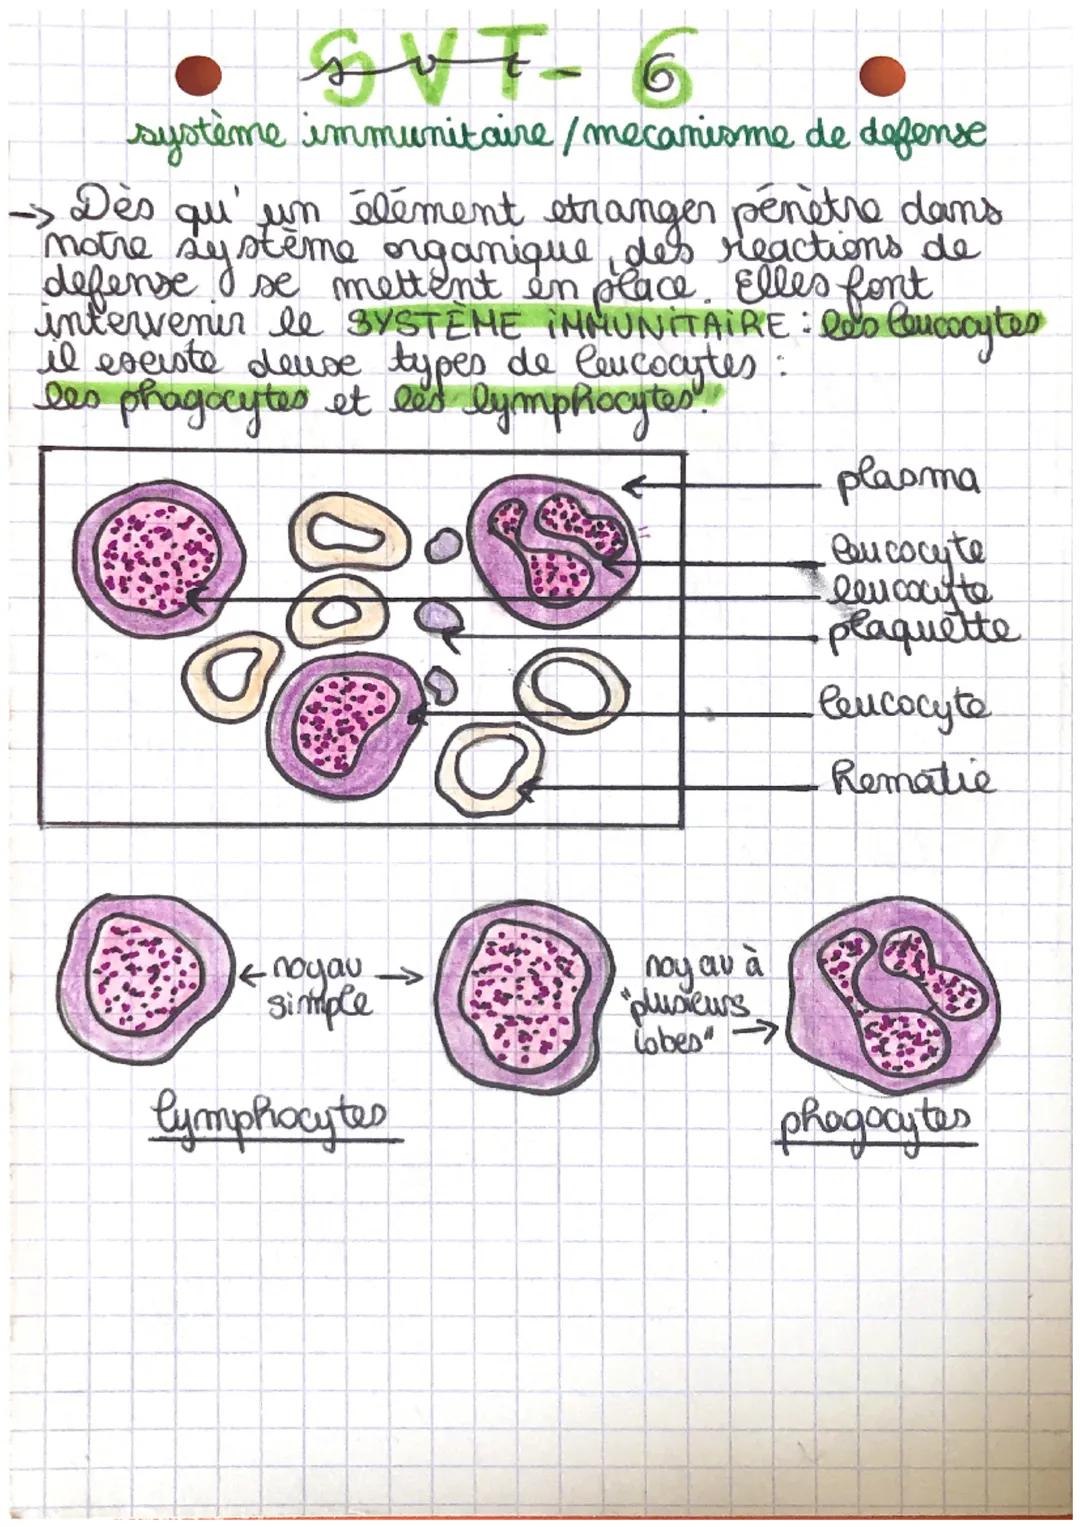 SVT-6
système immunitaire / mecanisme de defense
→ Dès qu'un élément etranger pénètre dans
notre système organique, des reactions de
defense se mettent en place. Elles font
intervenir le SYSTÈME iMMUNiTAiRE : les leucocytes
il existe deux types de leucocytes :
les phagocytes et les lymphocytes.
plasma
leucocyte
leucocyte
plaquette
leucocyte
Hematie
← noyau →
simple
noyau à
"plusieurs
lobes" →
lymphocytes
phagocytes